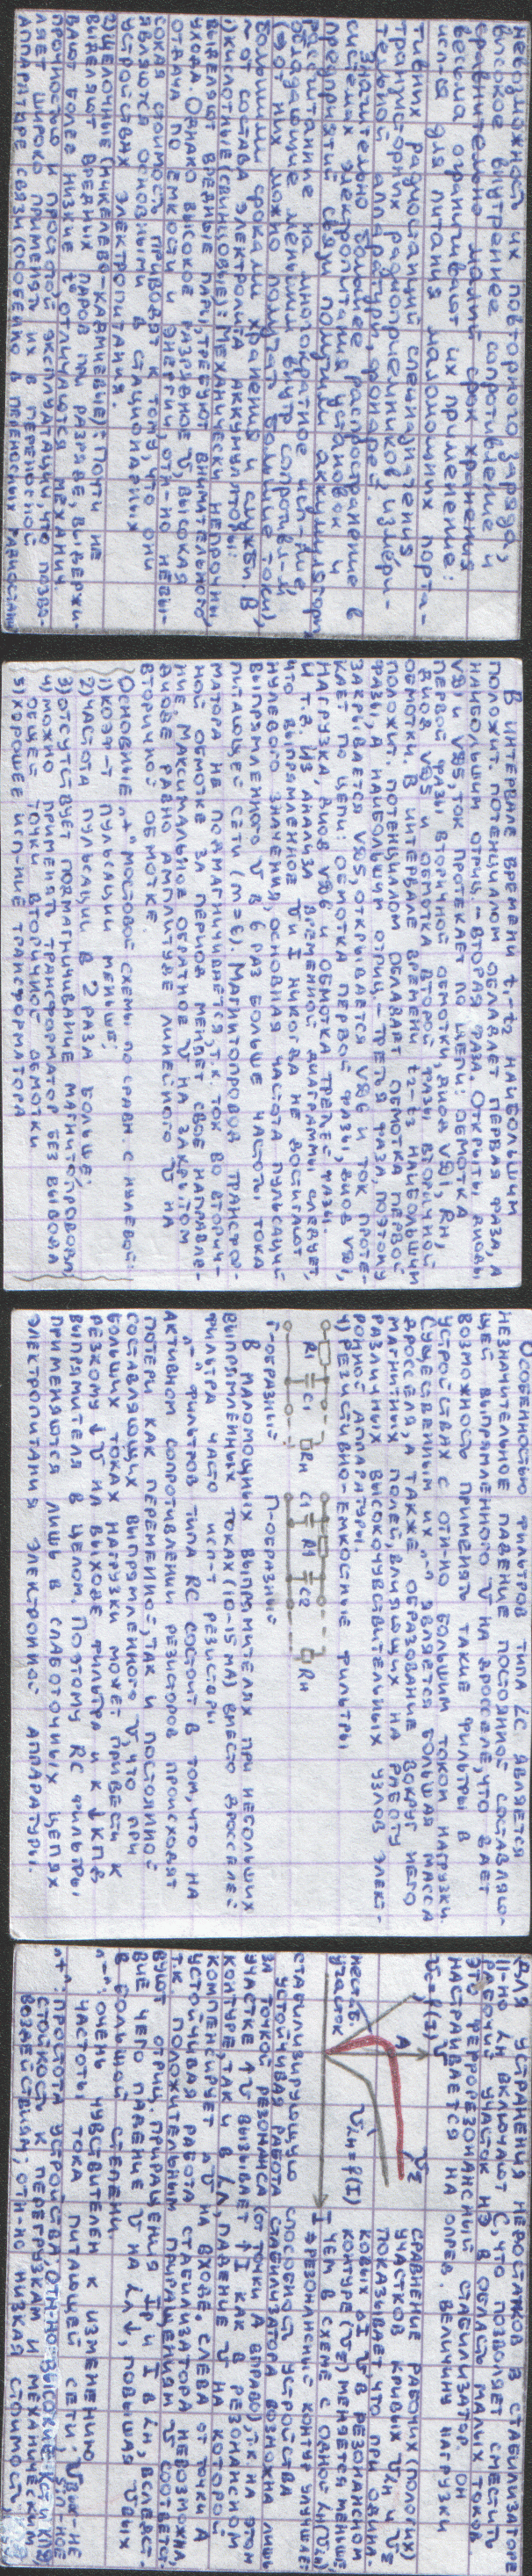 невозможность их повторного заряда,
высокое внутреннее сопротивление и
сравнительно малый срок хранения
весьма ограничивают их применение:
исп-я для питания маломощных порта-
тивных радиостанций специализ-ения
транзисторных радиоприемников, измери-
тельной аппаратуры, фонарей.
Значительно большее распространение в
системах электропитания установок и
предприятий связи получили аккумуляторы
рассчитанные на многократное исп-ние,
обладающие меньшим внутр. сопротивл-
(→ от них можно получать большие токи),
большим сроком хранения и службы. В
~ от состава электролита аккумуляторы:
1) кислотные (свинцовые): механически непрочны
выделяют вредные пары, требуют внимательного
ухода. Однако высокое разрядное U, высокая
отдача по емкости и энергии, отн-но невы-
сокая стоимость приводят к тому, что они
являются основными в стационарных
устройствах электропитания.
2) щелочные (никелево-кадмиевые): почти не
выделяют вредных паров при разряде, выдержи-
вают более низкие t°, отличаются механич.
прочностью и простотой эксплуатации, что позво-
ляет широко применять их в переносной
аппаратуре связи (особенно в переносных радиостанц
В интервале времени t1-t2 наибольшим
положит. потенциалом обладает первая фаза, а
наибольшим отриц. - вторая фаза. Открыты диоды
VD1 и VD5, ток протекает по цепи: обмотка
первой фазы вторичной обмотки, диод VD1, Rн,
диод VD5 и обмотка второй фазы вторичной
обмотки. В интервале времени t2-t3 наибольшим
положит. потенциалом обладает обмотка первой
фазы, а наибольшим отриц. - третья фаза, поэтому
закрывается VD5, открывается VD6 и ток проте-
кает по цепи: обмотка первой фазы, диод VD1,
нагрузка, диод VD6 и обмотка третьей фазы.
и т.д. Из анализа временной диаграммы следует,
что выпрямленное U и I никогда не достигают
нулевого значения, основная частота пульсаций
выпрямленного U в 6 раз больше частоты тока
питающей сети (m=6). Магнитопровод трансфор-
матора не подмагничивается, т.к. ток во вторич-
ной обмотке за период меняет свое направле-
ние. Максимальное обратное U на закрытом
диоде равно амплитуде линейного U на
вторичной обмотке
Основные "+" мостовой схемы по сравн. с нулевой:
1) коэф-т пульсации меньше;
2) частота пульсации в 2 раза больше;
3) отсутствует подмагничивание магнитопровода;
4) можно применять трансформатор без вывода
общей точки вторичной обмотки
5) хорошее исп-ние трансформатора
Особенностью фильтров типа LC является
незначительное падение постоянной составляю-
щей выпрямленного U на дросселе, что дает
возможность применять такие фильтры в
устройствах с отн-но большим током нагрузки.
Существенным их "-" является большая масса
дросселя, а также образование вокруг него
магнитных полей, влияющих на работу
различных высокочувствительных узлов элект-
ронной аппаратуры.
4) Резистивно-емкостные фильтры
R1 C1 Rн C1 R1 C2 Rн
Г-образный П-образный
В маломощных выпрямителях при небольших
выпрямленных токах (10-15 мА) вместо дросселей
фильтра часто исп-т резисторы
"-" фильтров типа RC состоит в том, что на
активном сопротивлении резисторов происходят
потери как переменной, так и постоянной
составляющих выпрямленного U, что при
больших токах нагрузки может привести к
резкому ↓ U на выходе фильтра и к ↓ КПД
выпрямителя в целом. Поэтому RC фильтры
применяются лишь в слаботочных цепях
электропитания электронной аппаратуры.
Для устранения недостатков в стабилизаторе
||-но Lн включают C, что позволяет сместить
рабочий участок НЭ в область малых токов.
Это феррорезонансный стабилизатор. Он
настраивается на опред. величину нагрузки
Uc=f(I) U
A UΣ
Сравнение рабочих (пологих)
участков кривых ULн и UΣ
показывает что при один-
ковых ΔI U в резонансном
контуре (UΣ) меняется меньше,
чем в схеме с одной Lн (ULн)
нестаб. участок
ULн=f(I)
I
→ резонансный контур улучшает
стабилизирующую способность устройства
Устойчивая работа стабилизатора возможна лишь
за точкой резонанса (от точки А вправо), т.к. на этом
участке ↑U вызывает ↑I как в резонансном
контуре, так и в Lл, падение U на которой
компенсирует ΔU на входе. Слева от точки А
устойчивая работа стабилизатора невозможна,
т.к. положительным приращениям U соответст-
вуют отриц. приращения Iр и I в Lн, вследст-
вие чего падение U на Lл↓, повышая Uвых
в большой степени.
"-": очень чувствителен к изменению
частоты тока питающей сети;
"+": простота устройства,
стойкость к перегрузкам и механическим
воздействиям; отн-но низкая стоимость